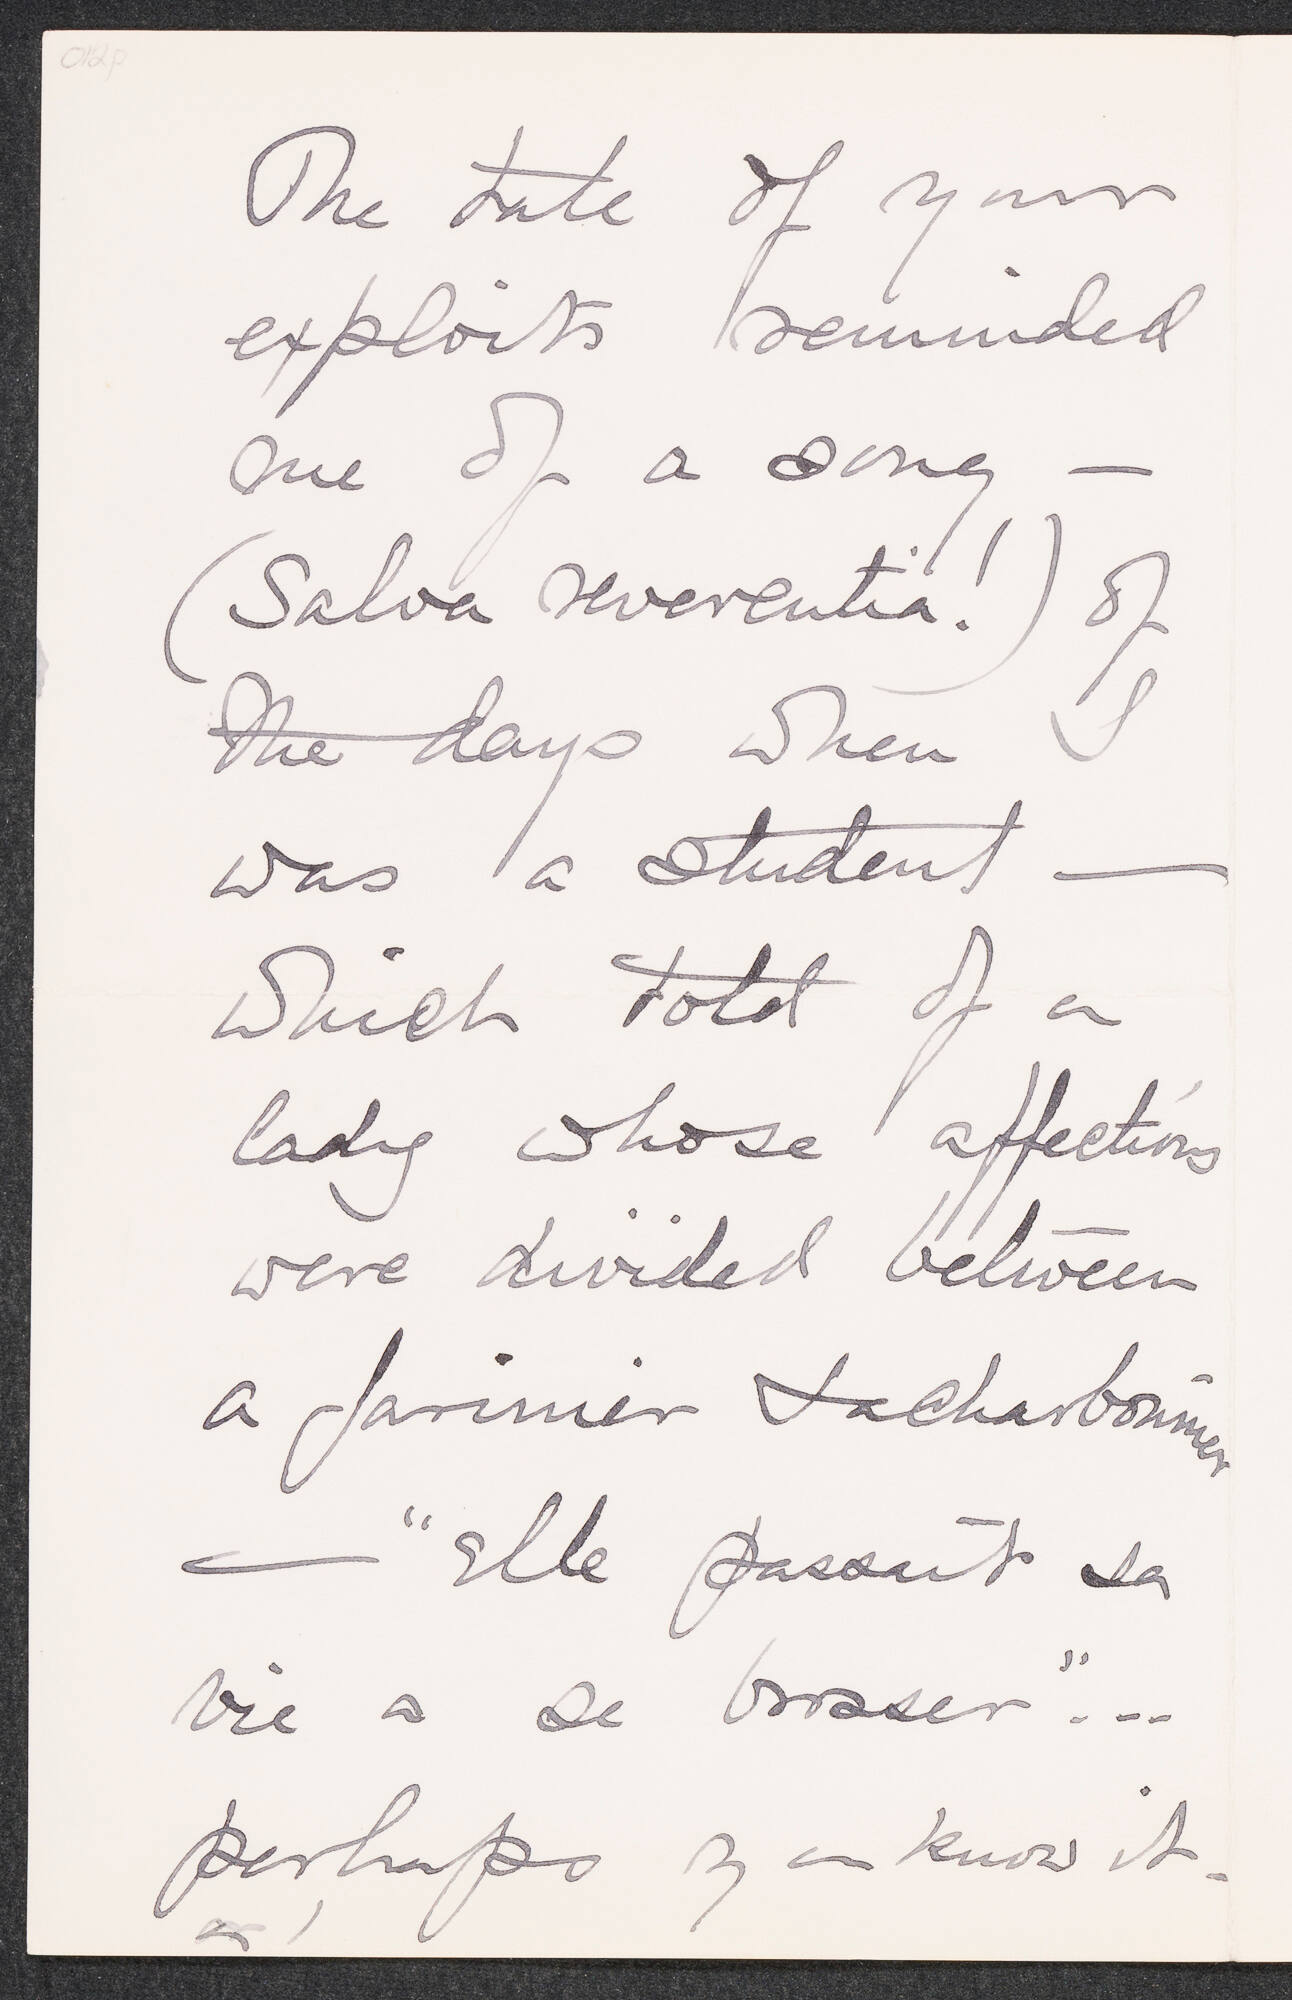 012p
The tale of your
exploits reminded
me of a song —
(Salva reverentia!) of
the days when I
was a student —
which told of a
lady whose affections
were divided between
a farinier & a charbonnier
— "Elle passait sa
vie a se brosser"...
perhaps you know it.